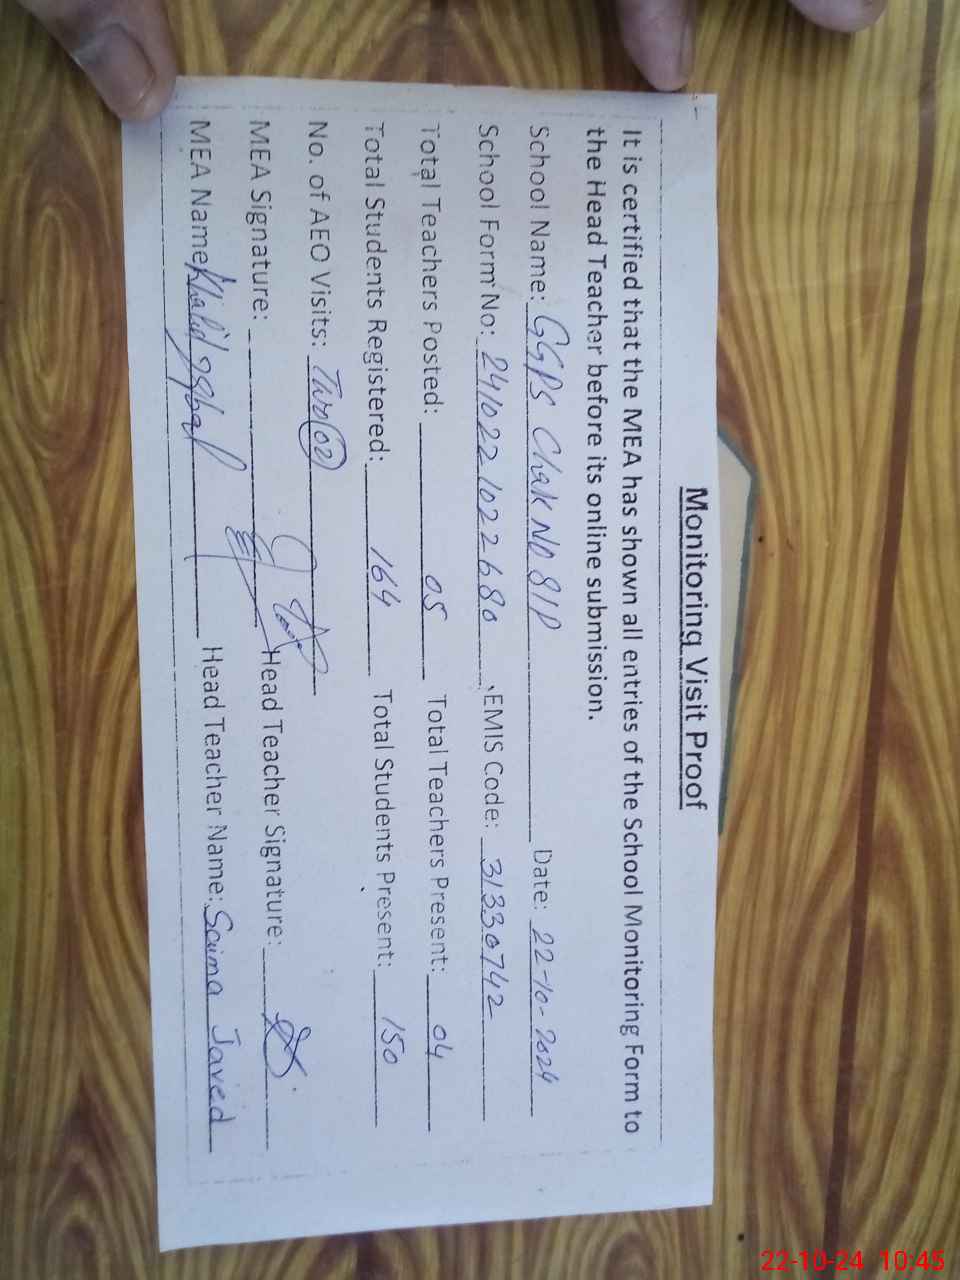 Monitoring Visit Proof
It is certified that the MEA has shown all entries of the School Monitoring Form to
the Head Teacher before its online submission.
School Name: GGPS Chak NO 81P Date: 22-10-2024
School Form No: 241022 1022680 EMIS Code: 31330742
Total Teachers Posted: 05 Total Teachers Present: 04
Total Students Registered: 164 Total Students Present: 150
No. of AEO Visits: Two (02)
MEA Signature: Head Teacher Signature:
MEA Name: Khalid Iqbal Head Teacher Name: Saima Javed
22-10-24 10:45